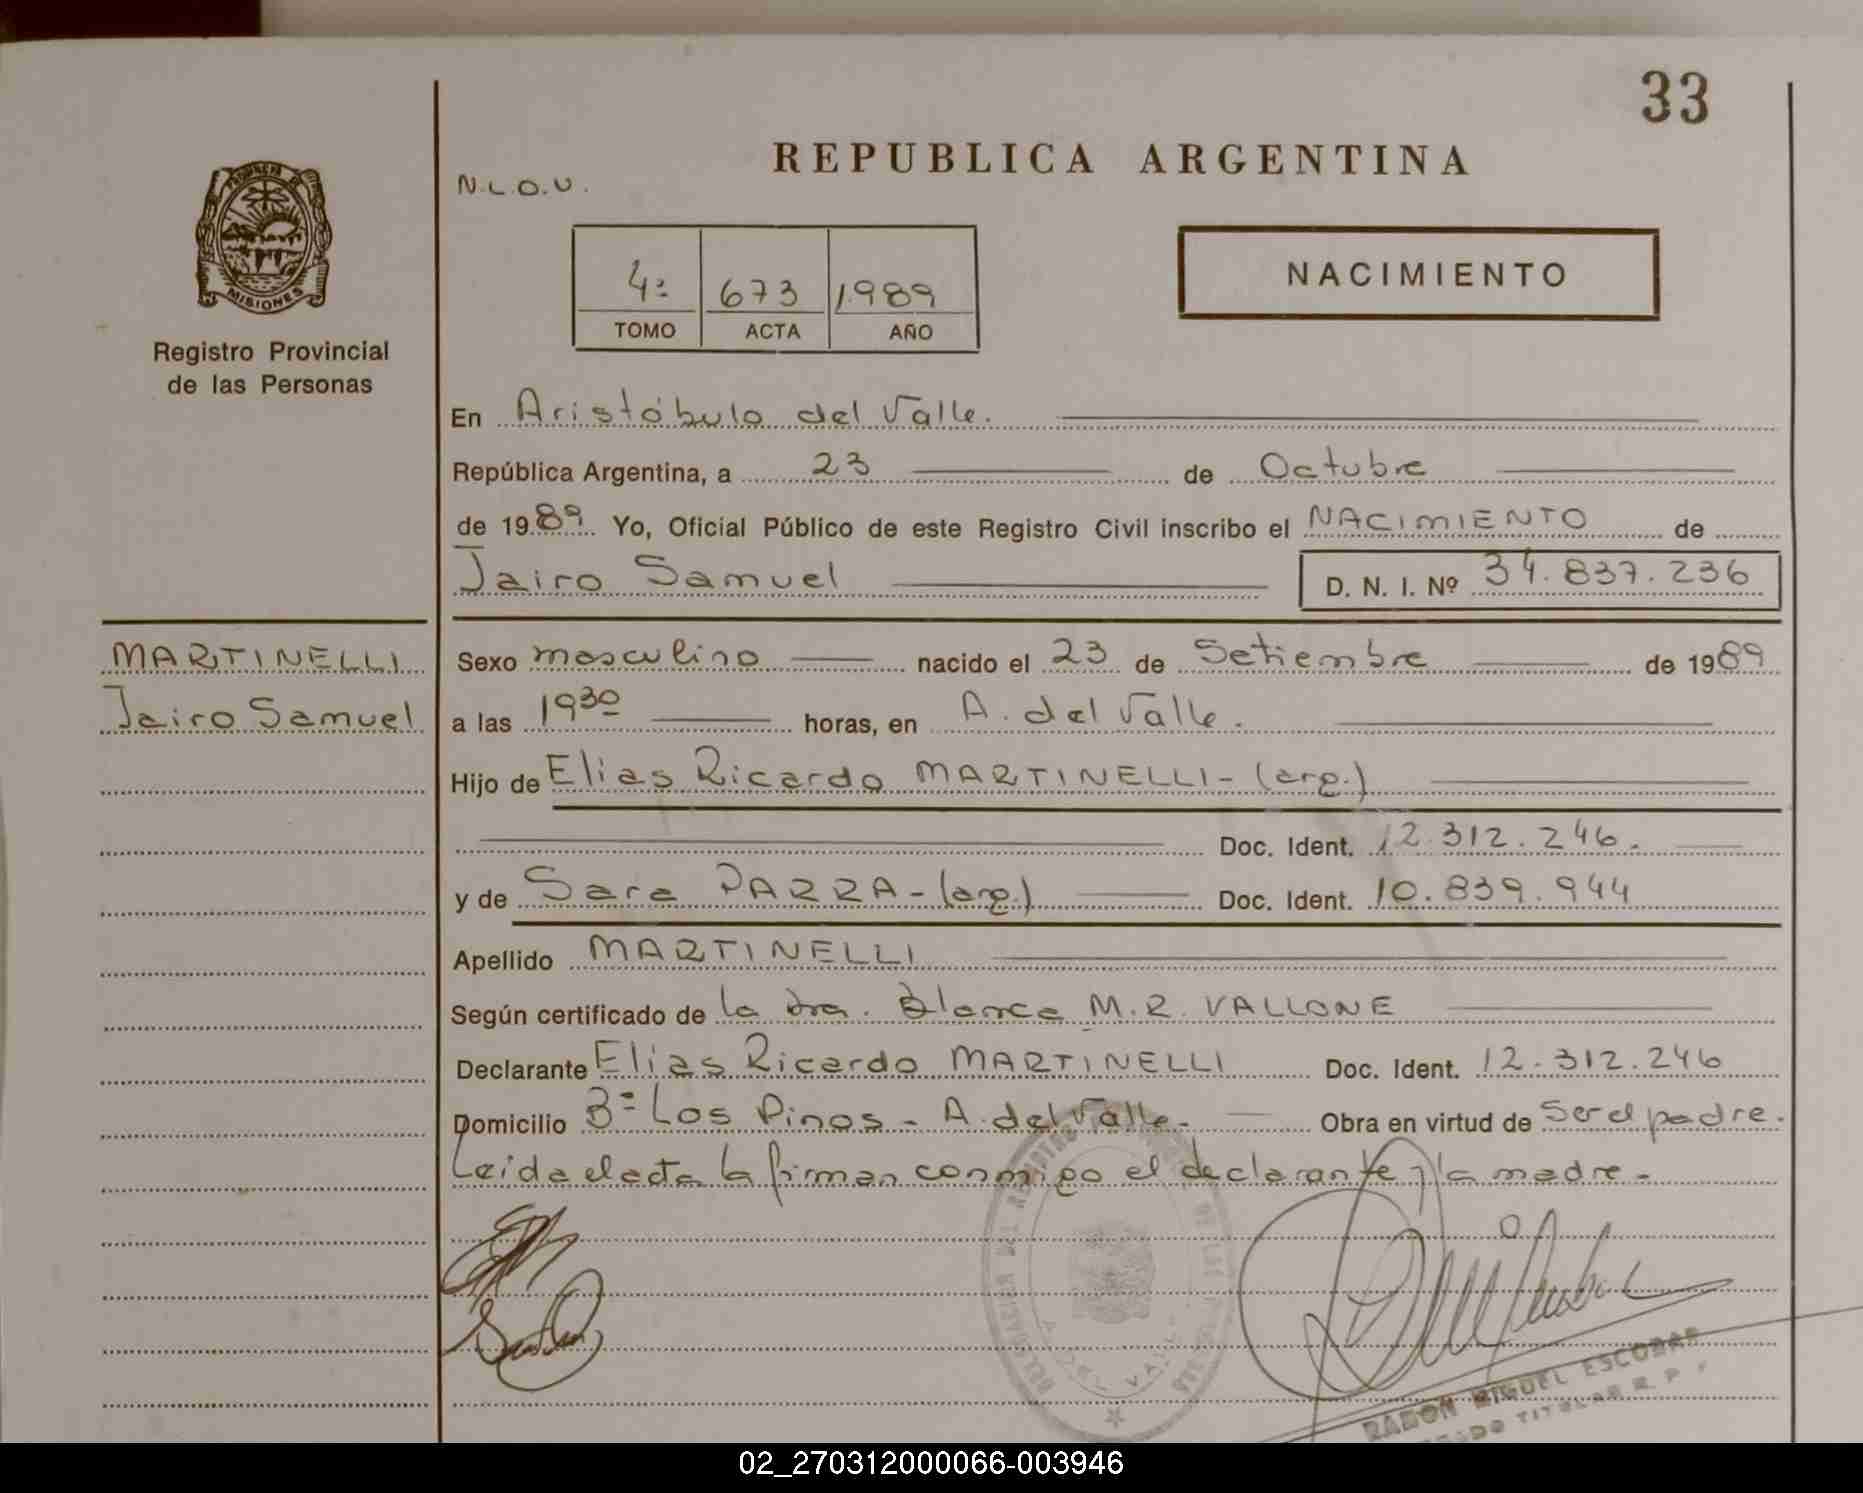 33
REPUBLICA ARGENTINA
N.L.O.U.
PROVINCIA DE
MISIONES
Registro Provincial
de las Personas
4º 673 1989
TOMO ACTA AÑO
NACIMIENTO
En Aristóbulo del Valle.
República Argentina, a 23 de Octubre
de 1989. Yo, Oficial Público de este Registro Civil inscribo el NACIMIENTO de
Jairo Samuel D. N. I. Nº 34.837.236
MARTINELLI
Jairo Samuel
Sexo masculino nacido el 23 de Setiembre de 1989
a las 19³⁰ horas, en A. del Valle.
Hijo de Elias Ricardo MARTINELLI - (arg.)
Doc. Ident. 12.312.246.
y de Sara PARRA - (arg.) Doc. Ident. 10.839.944
Apellido MARTINELLI
Según certificado de la Dra. Blanca M.R. VALLONE
Declarante Elias Ricardo MARTINELLI Doc. Ident. 12.312.246
Domicilio Bº Los Pinos - A. del Valle - Obra en virtud de Ser el padre.
Leida el acta la firman conmigo el declarante y la madre -
A. DEL VALLE
RAMON MIGUEL ESCOBAR
TITULAR R. P.
02_270312000066-003946